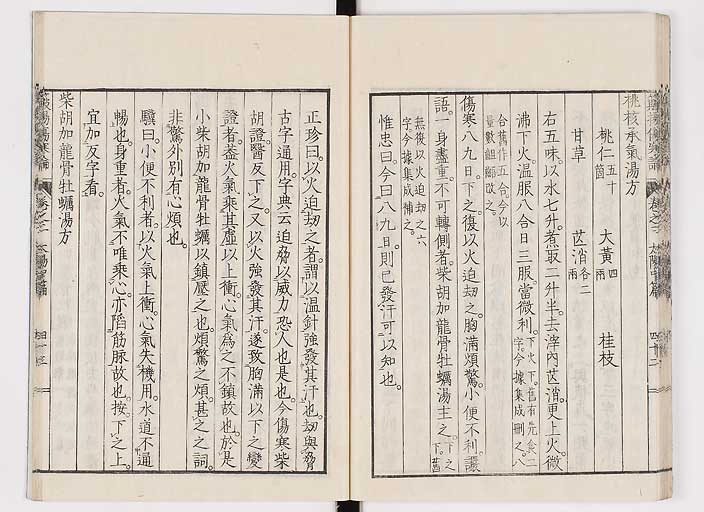 桃核承氣湯方
桃仁五十箇 大黃四兩 桂枝
甘草 芒消各二兩
右五味。以水七升。煮取二升半。去滓。內芒消。更上火。微
沸。下火。溫服八合。日三服。當微利。下火下。舊有先食二字。今據集成刪之。八
合舊作五合。今以量數齟齬改之。
傷寒八九日。下之。復以火迫劫之。胸滿煩驚。小便不利。讝
語。一身盡重。不可轉側者。柴胡加龍骨牡蠣湯主之。下之下。舊
無復以火迫劫之六字。今據集成補之。
惟忠曰。今曰八九日。則已發汗可以知也。
正珍曰。以火迫劫之者。謂以溫針強發其汗也。劫與脅
古字通用。字典云。迫脅以威力恐人也是也。今傷寒柴
胡證。醫反下之。又以火強發其汗。遂致胸滿以下之變
證者。蓋火氣乘其虛以上衝。心氣爲之不鎮故也。於是
小柴胡加龍骨牡蠣以鎮壓之也。煩驚之煩。甚之之詞。
非驚外別有心煩也。
驥曰。小便不利者。以火氣上衝。心氣失機用。水道不通
暢也。身重者。火氣不唯乘心。亦陷筋脈故也。按。下之上。
宜加反字看。
柴胡加龍骨牡蠣湯方